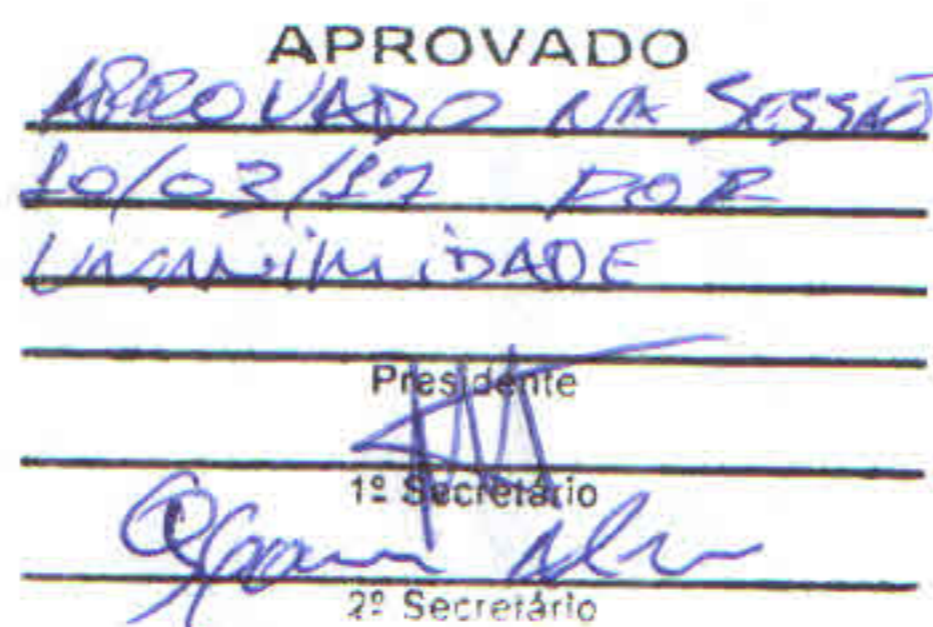 APROVADO
APROVADO NA SESSÃO
10/03/17 POR
UNANIMIDADE
Presidente
1º Secretário
2º Secretário